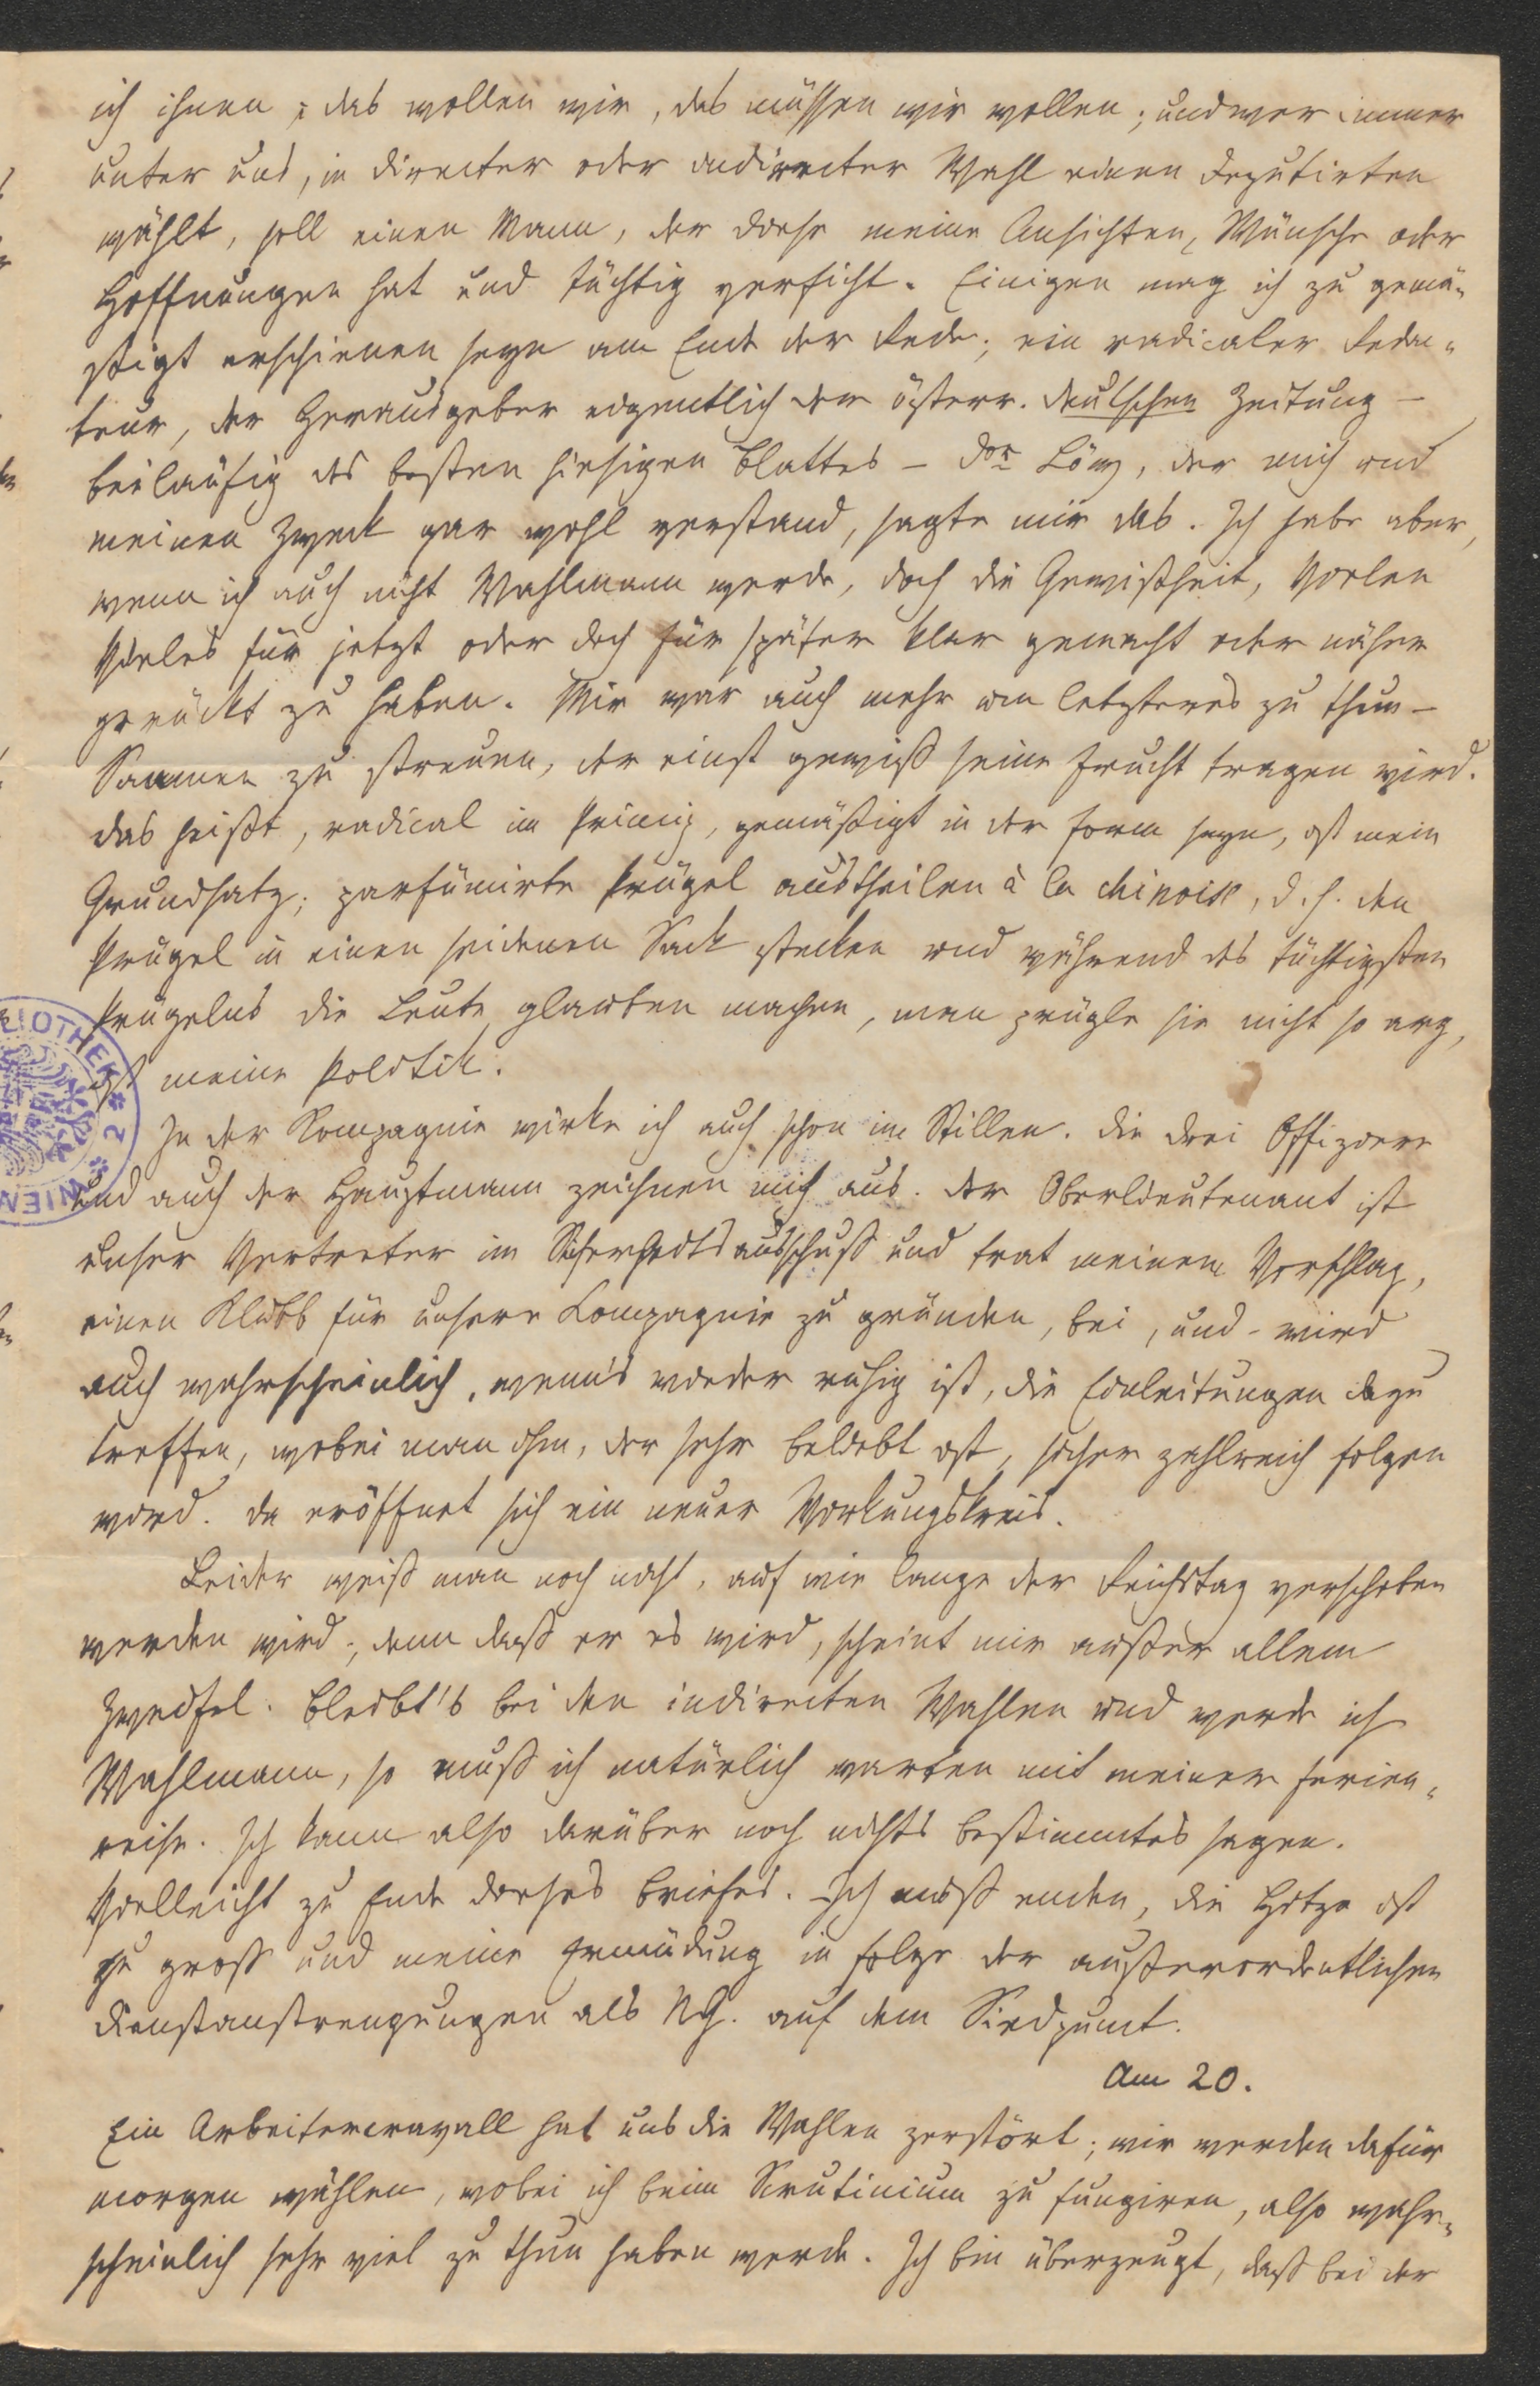 ich ihnen; das wollen wir, das müssen wir wollen; und wer immer
unter uns, in directer oder indirecter Wahl einen Deputirten
wählt, soll einen Mann, der diese meine Ansichten, Wünsche oder
Hoffnungen hat und tüchtig verficht. Einigen mag ich zu gemä-
ßigt erschienen seyn am Ende der Rede; ein radicaler Redac-
teur, der Herausgeber eigentlich der österr. deutschen Zeitung –
beiläufig des besten hiesigen Blattes – Dor Löw, der mich und
meinen Zweck gar wohl verstand, sagte mir das. Ich habe aber,
wenn ich auch nicht Wahlmann werde, doch die Gewißheit, Vielen
Vieles für jetzt oder doch für später klar gemacht oder näher
gerückt zu haben. Mir war auch mehr um letzteres zu thun –
Saamen zu streuen, der einst gewiß seine Frucht tragen wird.
Das heißt, radical im Princip, gemäßigt in der Form seyn, ist mein
Grundsatz; parfümirte Prügel austheilen à la chinois, d. h. den
Prügel in einen seidenen Sack stecken und während des tüchtigsten
Prügelns die Leute glauben machen, man prügle sie nicht so arg,
ist meine Politik.
In der Kompagnie wirke ich auch schon im Stillen. Die drei Offiziere
und auch der Hauptmann zeichnen mich aus. Der Oberlieutenant ist
unser Vertreter im Sicherheitsausschuß und trat meinem Vorschlag,
einen Klubb für unsere Compagnie zu gründen, bei, und wird
auch wahrscheinlich, wenn's wieder ruhig ist, die Einleitungen dazu
treffen, wobei man ihm, der sehr beliebt ist, sicher zahlreich folgen
wird. Da eröffnet sich ein neuer Wirkungskreis.
Leider weiß man noch nicht, auf wie lange der Reichstag verschoben
werden wird; denn daß er es wird, scheint mir außer allem
Zweifel. Bleibt's bei den indirecten Wahlen und werde ich
Wahlmann, so muß ich natürlich warten mit meiner Ferien-
reise. Ich kann also darüber noch nichts bestimmtes sagen.
Vielleicht zu Ende dieses Briefes. – Ich muß enden, die Hitze ist
zu groß und meine Ermüdung in Folge der außerordentlichen
Dienstanstrengungen als NG. auf dem Siedpunct.
Am 20.
Ein Arbeitercravall hat uns die Wahlen zerstört; wir werden dafür
morgen wählen, wobei ich beim Scrutinium zu fungiren, also wahr-
scheinlich sehr viel zu thun haben werde. Ich bin überzeugt, daß bei der
LIOTHEK * 2 * WIEN